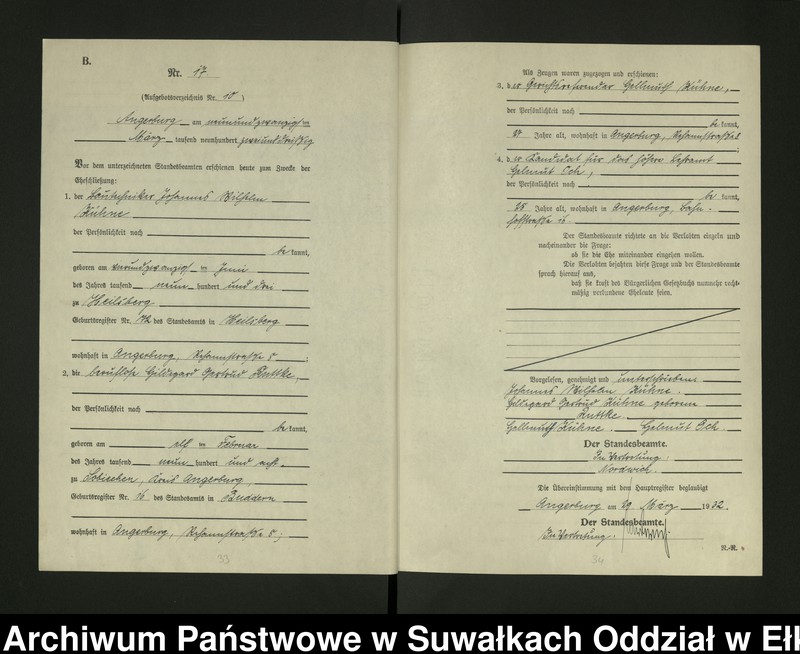 B.
Nr. 17
(Aufgebotsverzeichnis Nr. 10)
Angerburg am neunundzwanzigsten
März tausend neunhundert zweiunddreißig
Vor dem unterzeichneten Standesbeamten erschienen heute zum Zwecke der
Eheschließung:
1. der Bautechniker Johannes Wilhelm
Kühne
der Persönlichkeit nach
be kannt,
geboren am ten Juni
des Jahres tausend neun hundert und drei
zu Heilsberg
Geburtsregister Nr. 142 des Standesamts in Heilsberg
wohnhaft in Angerburg, 5 ;
2. die berufslose Hildegard Gertrud Ruttke,
der Persönlichkeit nach
be kannt,
geboren am elf ten Februar
des Jahres tausend neun hundert und acht
zu Kreis Angerburg,
Geburtsregister Nr. 16 des Standesamts in Buddern
wohnhaft in Angerburg, 5 ;
33
Als Zeugen waren zugezogen und erschienen:
3. der Gerichtsreferendar Hellmuth Kühne,
der Persönlichkeit nach
be kannt,
Jahre alt, wohnhaft in Angerburg,
;
4. der Kandidat für das höhere Lehramt
Helmut
der Persönlichkeit nach
be kannt,
Jahre alt, wohnhaft in Angerburg, Bahn-
hofstraße
Der Standesbeamte richtete an die Verlobten einzeln und
nacheinander die Frage:
ob sie die Ehe miteinander eingehen wollen.
Die Verlobten bejahten diese Frage und der Standesbeamte
sprach hierauf aus,
daß sie kraft des Bürgerlichen Gesetzbuchs nunmehr recht-
mäßig verbundene Eheleute seien.
Vorgelesen, genehmigt und unterschrieben
Johannes Wilhelm Kühne.
Hildegard Gertrud Kühne geborene
Ruttke
Hellmuth Kühne. Helmut
Der Standesbeamte.
In Vertretung:
Nordwich.
Die Übereinstimmung mit dem Hauptregister beglaubigt
Angerburg am 29 März 1932.
Der Standesbeamte.
In Vertretung.
34
Archiwum Państwowe w Suwałkach Oddział w Ełk